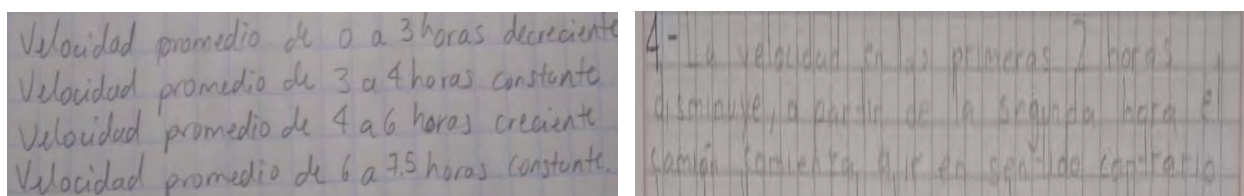 Velocidad promedio de 0 a 3 horas decreciente
Velocidad promedio de 3 a 4 horas constante
Velocidad promedio de 4 a 6 horas creciente
Velocidad promedio de 6 a 7.5 horas constante.
4- La velocidad en las primeras 2 horas
disminuye, a partir de la segunda hora el
camión comienza a ir en sentido contrario